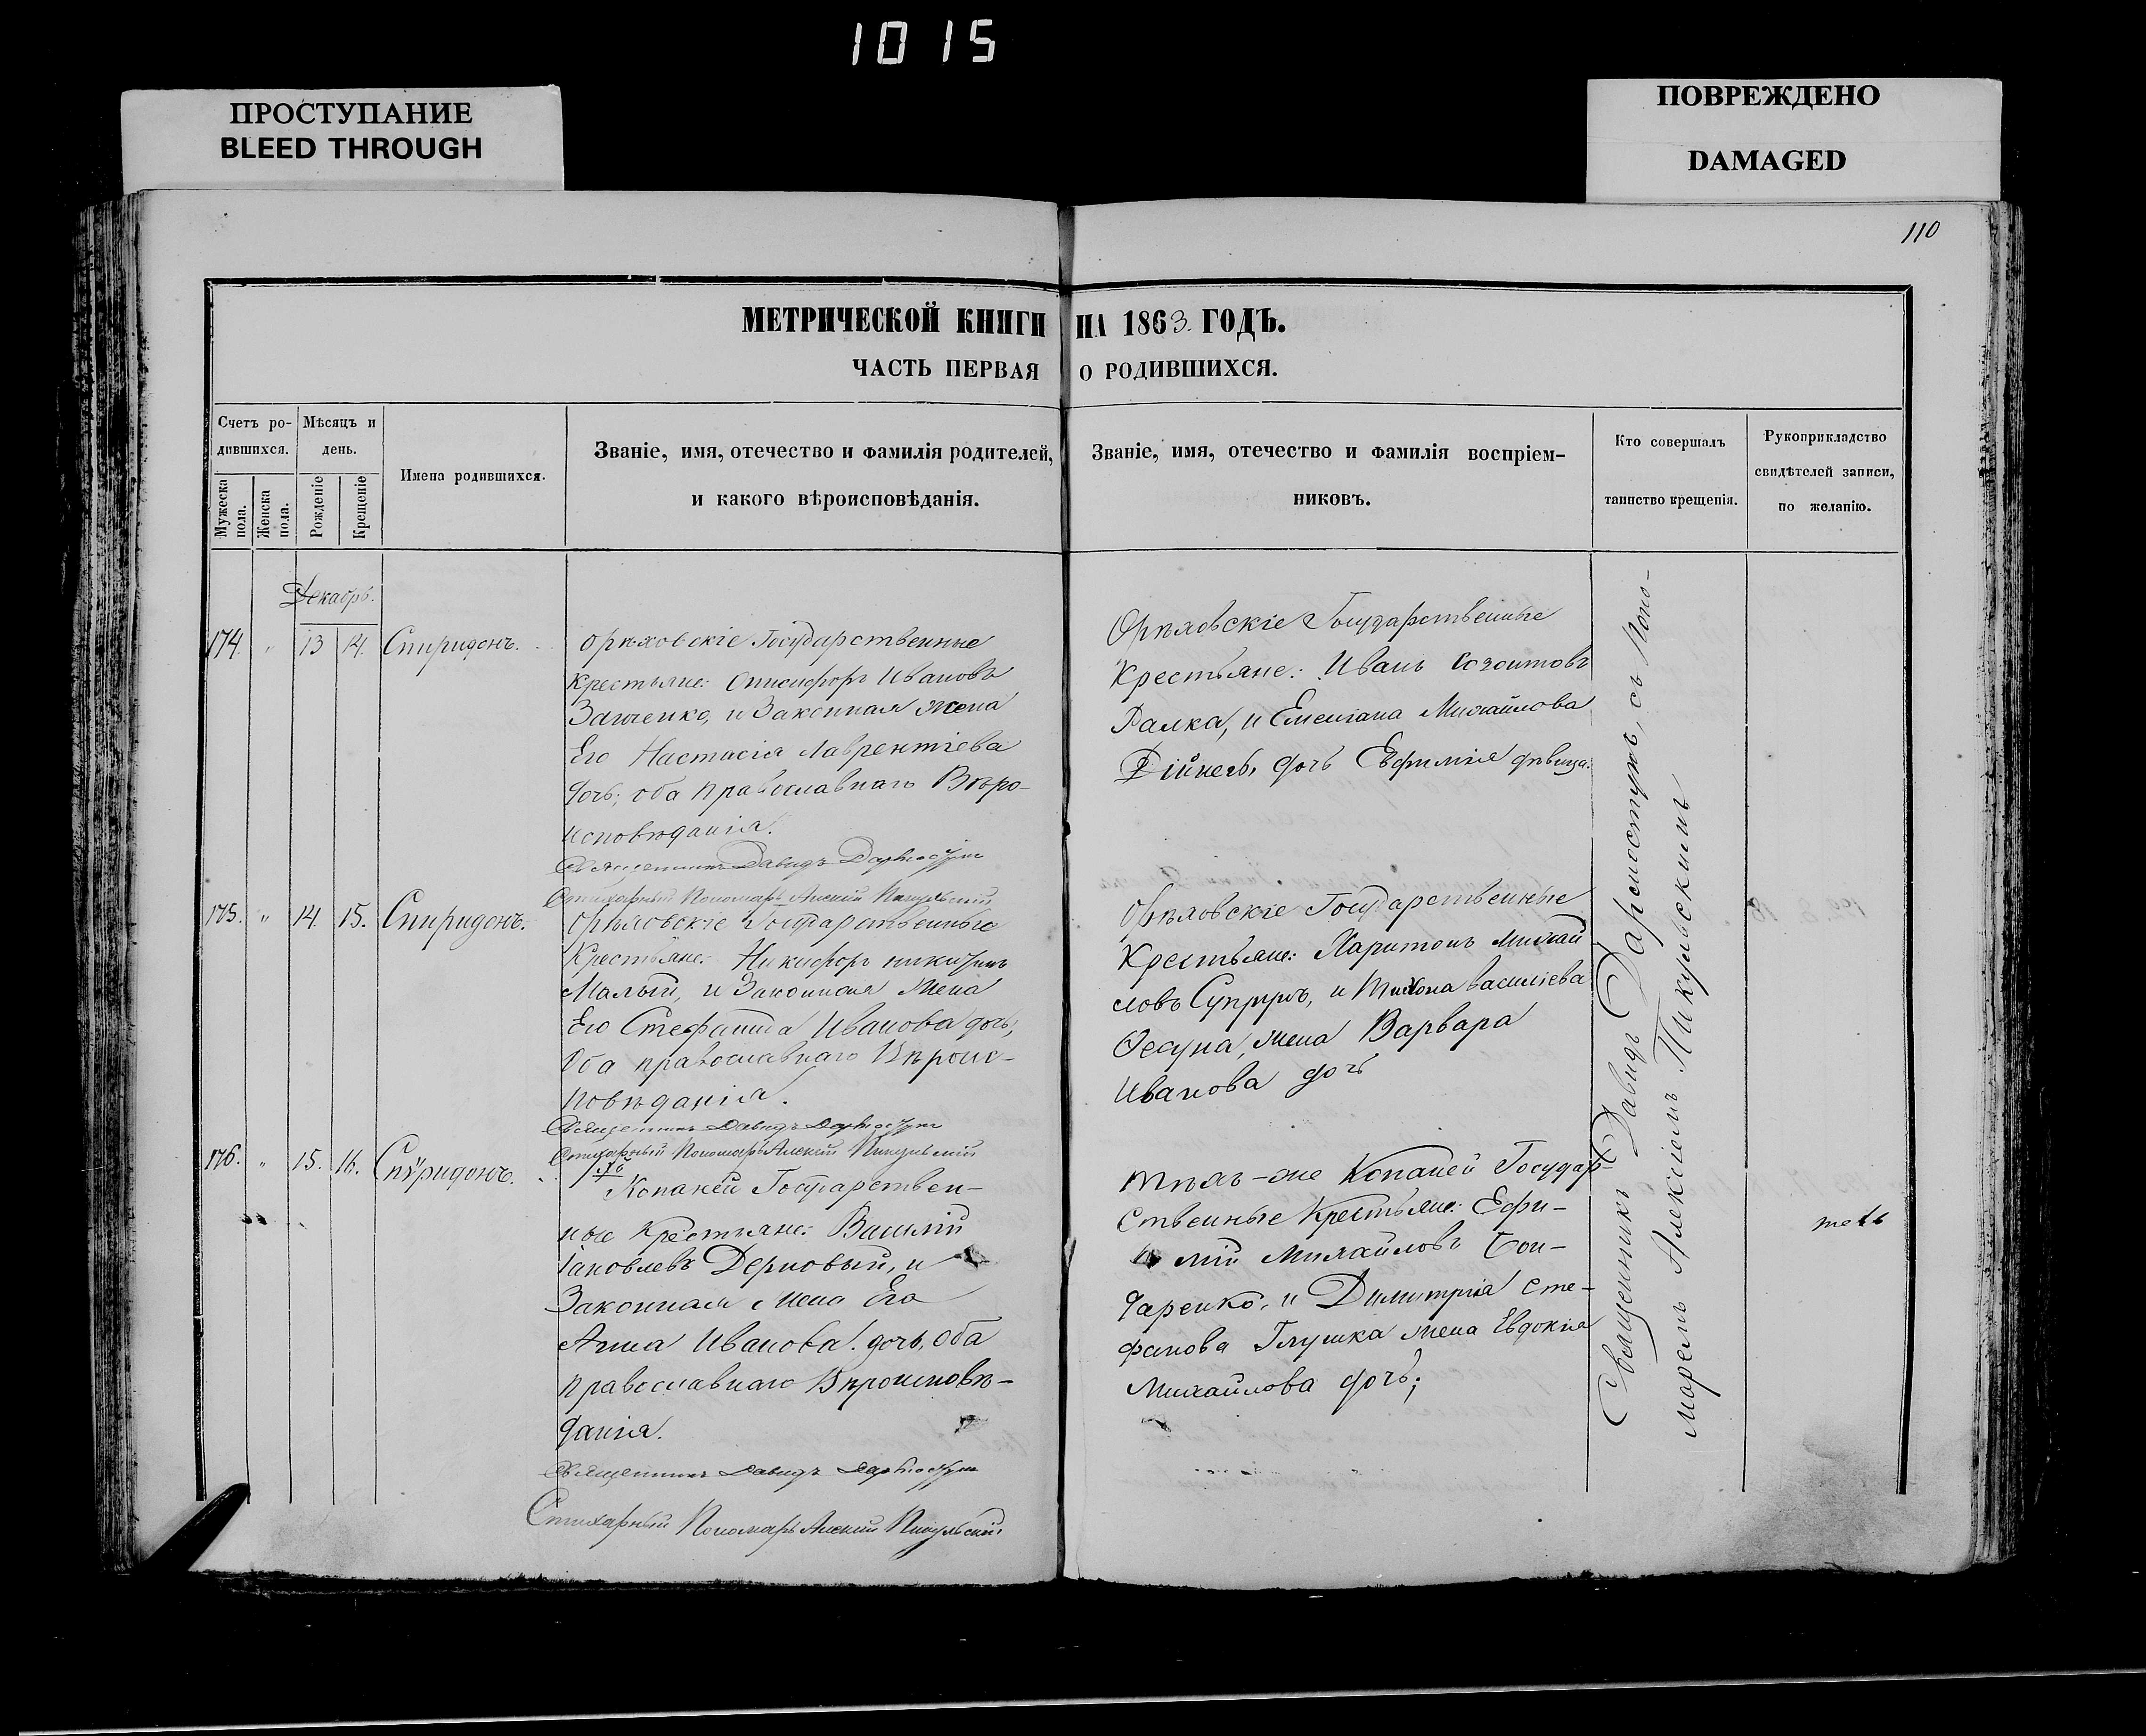 1015
ПРОСТУПАНИЕ
BLEED THROUGH
ПОВРЕЖДЕНО
DAMAGED
110
МЕТРИЧЕСКОЙ КНИГИ НА 1863 ГОДЪ.
ЧАСТЬ ПЕРВАЯ О РОДИВШИХСЯ.
Счетъ ро-
дившихся.
Мужеска
пола.
Женска
пола.
Мѣсяцъ и
день.
Рожденіе
Крещеніе
Имена родившихся.
Званіе, имя, отечество и фамилія родителей,
и какого вѣроисповѣданія.
Званіе, имя, отечество и фамилія воспріем-
никовъ.
Кто совершалъ
таинство крещенія.
Рукоприкладство
свидѣтелей записи,
по желанію.
Декабрь.
174. " 13 14. Спиридонъ.
Орѣховскіе Государственные
Крестьяне: Онисифоръ Ивановъ
и Законная жена
Его Настасія Лаврентіева
дочь; оба Православнаго Вѣро-
исповѣданія.
Священникъ Давидъ
Стихарный Пономарь Алексій Пикульскій
Орѣховскіе Государственные
Крестьяне: Иванъ Созонтовъ
Галка, и Емельяна Михайлова
дочь Евфимія дѣвица.
175. " 14. 15. Спиридонъ.
Орѣховскіе Государственные
Крестьяне: Никифоръ Никитинъ
Малый, и Законная жена
Его Стефанида Иванова дочь;
Оба православнаго Вѣроис-
повѣданія.
Священникъ Давидъ
Стихарный Пономарь Алексій Пикульскій
Орѣховскіе Государственные
Крестьяне: Харитонъ Михай
ловъ Супрунъ, и Тихона Василіева
жена Варвара
Иванова дочь
176. " 15. 16. Спѵридонъ.
Копаней Государствен-
ные Крестьяне: Василій
Іаковлевъ Дерновый, и
Законная жена Его
Анна Иванова дочь, Оба
Православнаго Вѣроисповѣ-
данія.
Священникъ Давидъ
Стихарный Пономарь Алексій Пикульскій.
тѣхъ-же Копаней Государ-
ственные Крестьяне: Ефи-
мій Михайловъ Бон-
даренко, и Димитрія Сте-
фанова Глушка жена Евдокія
Михайлова дочь;
Священникъ Давидъ с Поно-
маремъ Алексіемъ Пикульскимъ